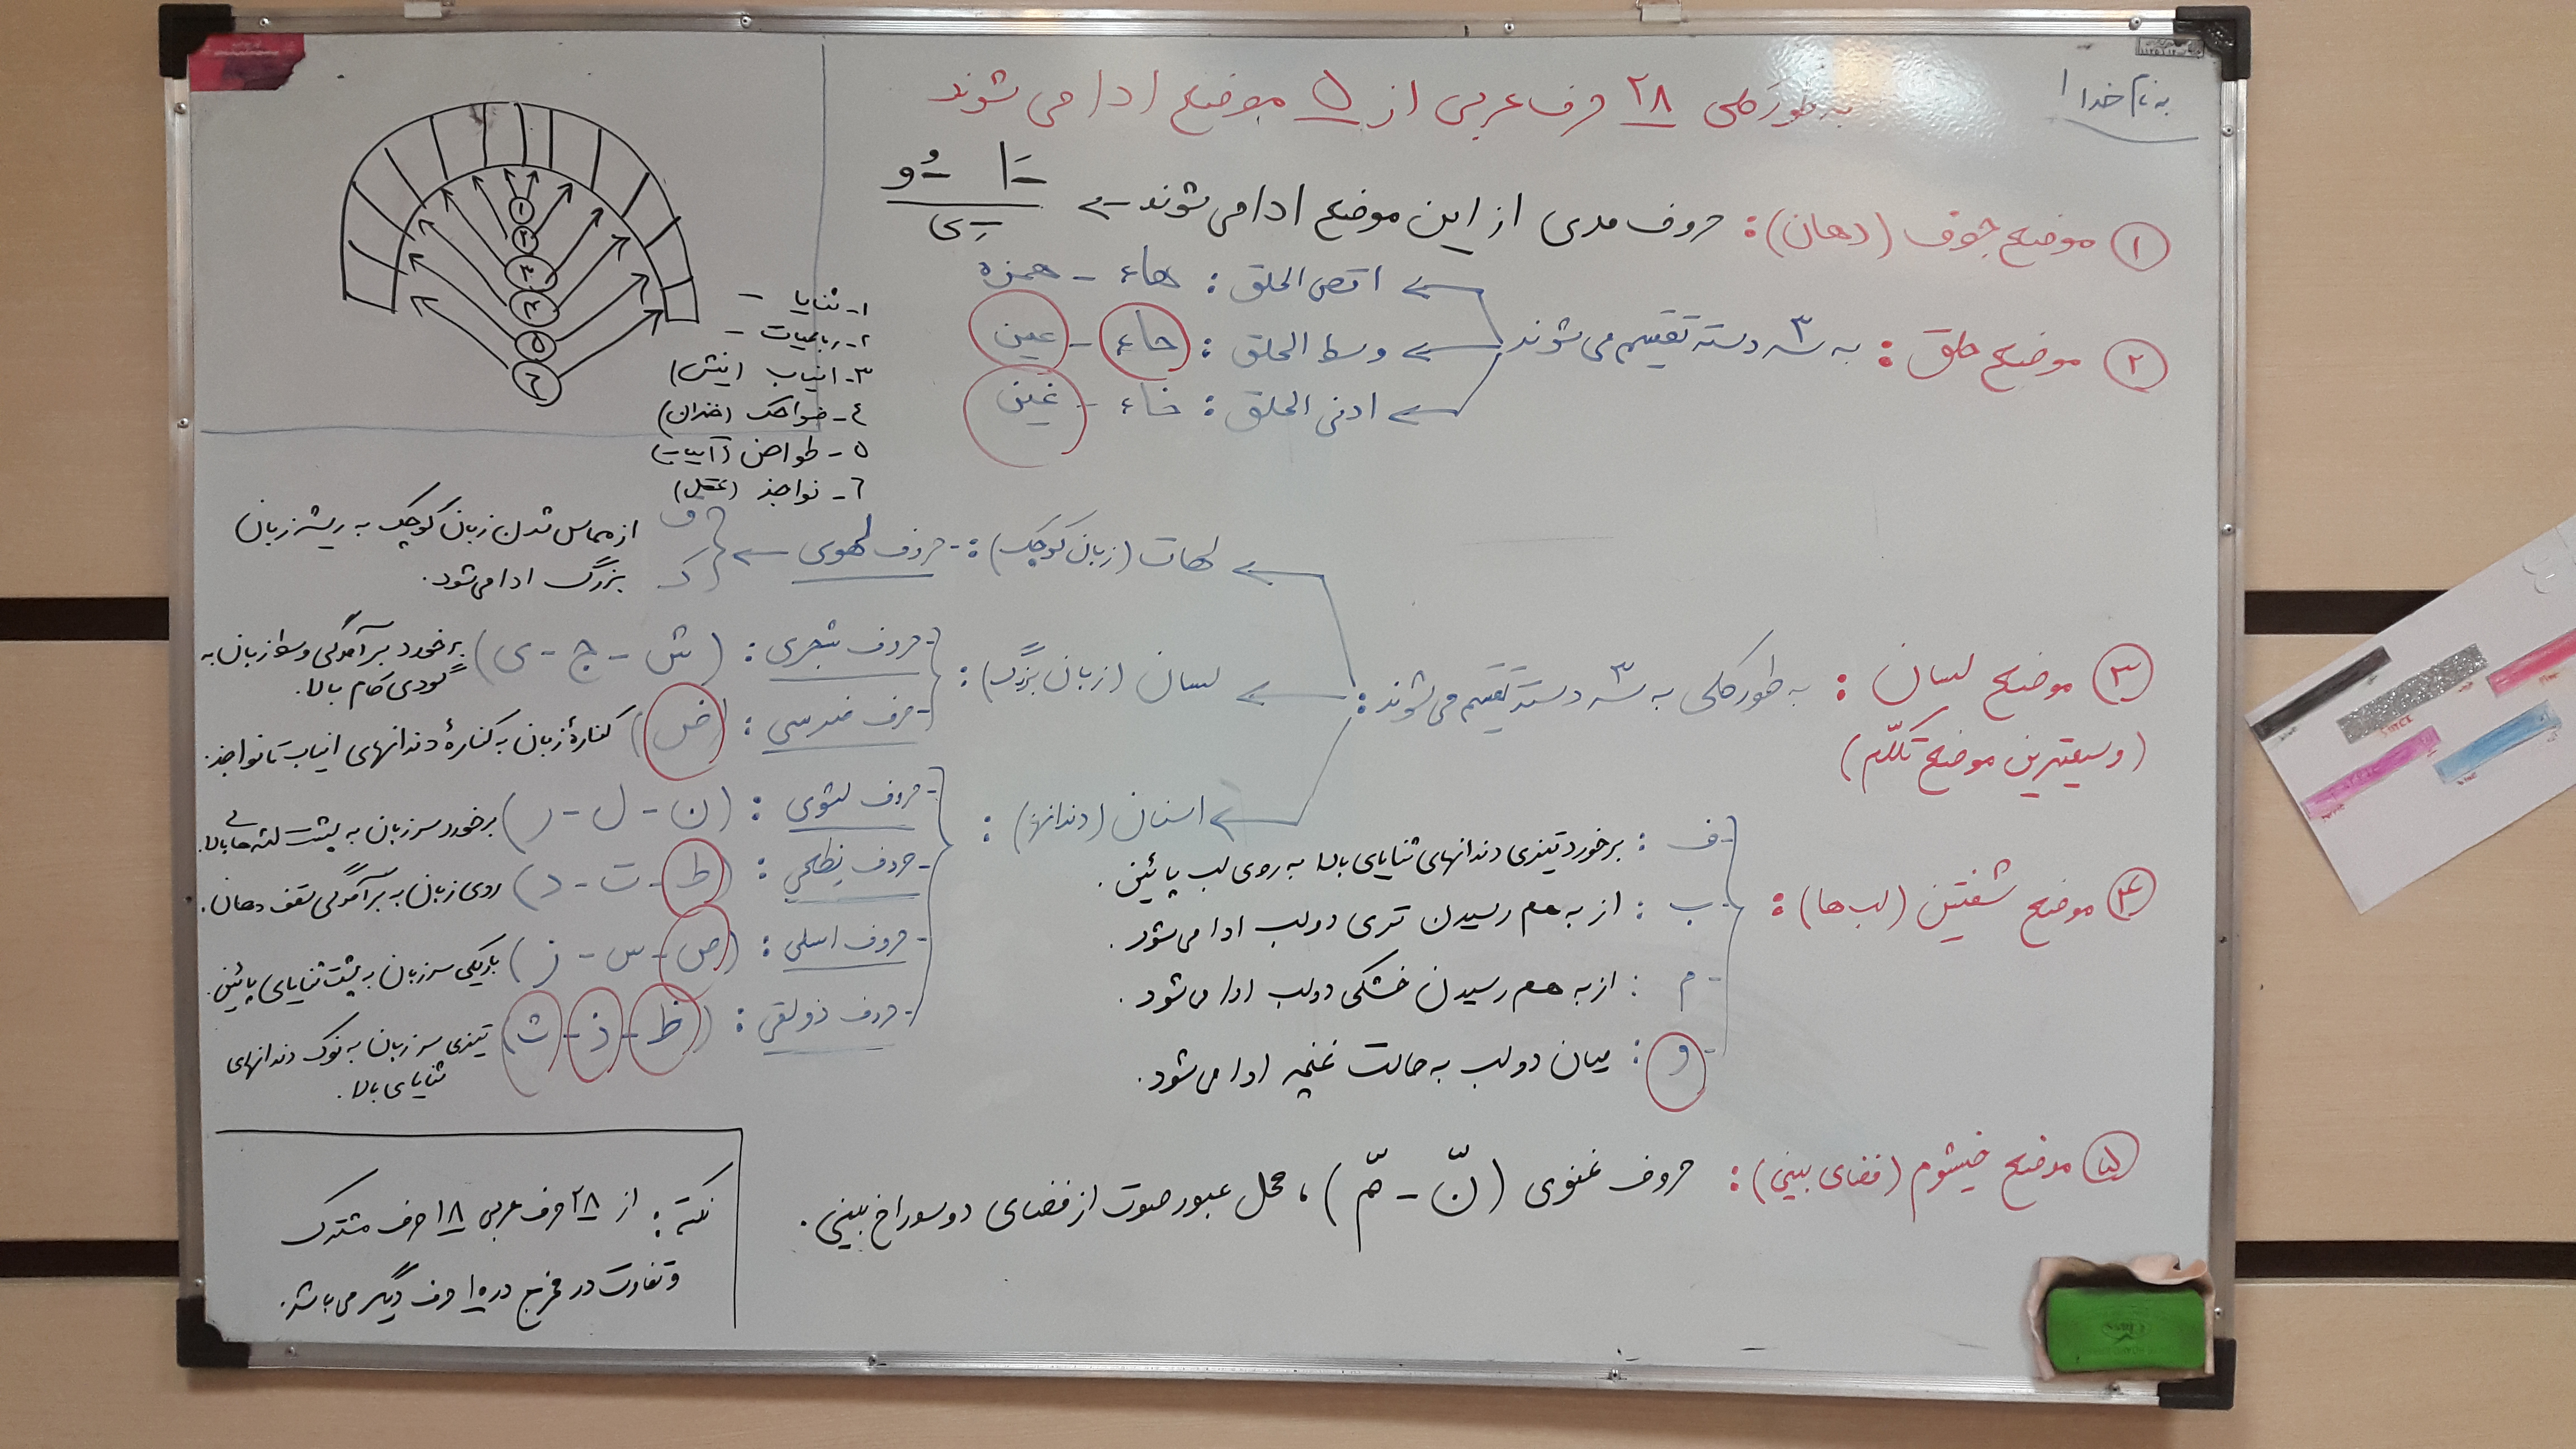 به نام خدا
به طور کلی ۲۸ حرف عربی از ۵ موضع ادا می شوند
۱ موضع جوف (دهان) : حروف مدی از این موضع ادا می شوند ← ـَا ـُو
ـِی
۲ موضع حلق : به سه ۳ دسته تقسیم می شوند
اقصی الحلق : هاء - همزه
وسط الحلق : حاء - عین
ادنی الحلق : خاء - غین
۱ ۲ ۳ ۴ ۵ ۶
۱- ثنایا -
۲- رباعیات -
۳- انیاب (نیش)
٤- ضواحک (خندان)
۵- طواحن (آسیاب)
٦- نواجذ (عقل)
۳ موضع لسان : به طور کلی به سه ۳ دسته تقسیم می شوند :
(وسیعترین موضع تکلّم)
لهات (زبان کوچک) : - حروف لهوی ← ق
ک
از مماس شدن زبان کوچک به ریشه زبان
بزرگ ادا می شود.
لسان (زبان بزرگ) :
- حروف شجری : (ش - ج - ی) برخورد برآمدگی وسط زبان به
گودی کام بالا.
- حرف ضرسی : (ض) کنارهٔ زبان به کنارهٔ دندانهای انیاب تا نواجذ.
اسنان (دندانها) :
- حروف لثوی : (ن - ل - ر) برخورد سر زبان به پشت لثه های بالا.
- حروف نطعی : (ط - ت - د) روی زبان به برآمدگی سقف دهان.
- حروف اسلی : (ص - س - ز) باریکی سر زبان به پشت ثنایای پائین.
- حروف ذولقی : (ظ - ذ - ث) تیزی سر زبان به نوک دندانهای
ثنایای بالا.
۴ موضع شفتین (لب ها) :
- ف : برخورد تیزی دندانهای ثنایای بالا به روی لب پائین.
- ب : از به هم رسیدن تری دو لب ادا می شود.
- م : از به هم رسیدن خشکی دو لب ادا می شود.
- و : میان دو لب به حالت غنچه ادا می شود.
۵ موضع خیشوم (فضای بینی) : حروف غنوی (نّ - مّ) ، محل عبور صوت از فضای دو سوراخ بینی.
نکته : از ۲۸ حرف عربی ۱۸ حرف مشترک
و تفاوت در مخرج در ۱۰ حرف دیگر می باشد.